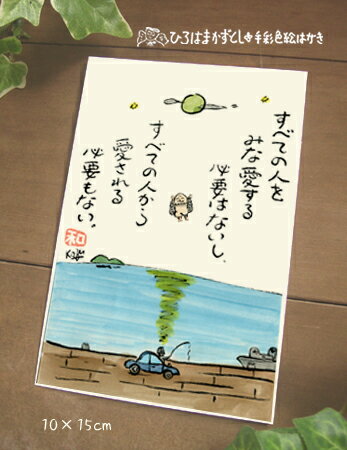 ひろはまかずとし手彩色絵はがき
すべての人を
みな愛する
必要はないし、
すべての人から
愛される
必要もない。
和
10×15cm